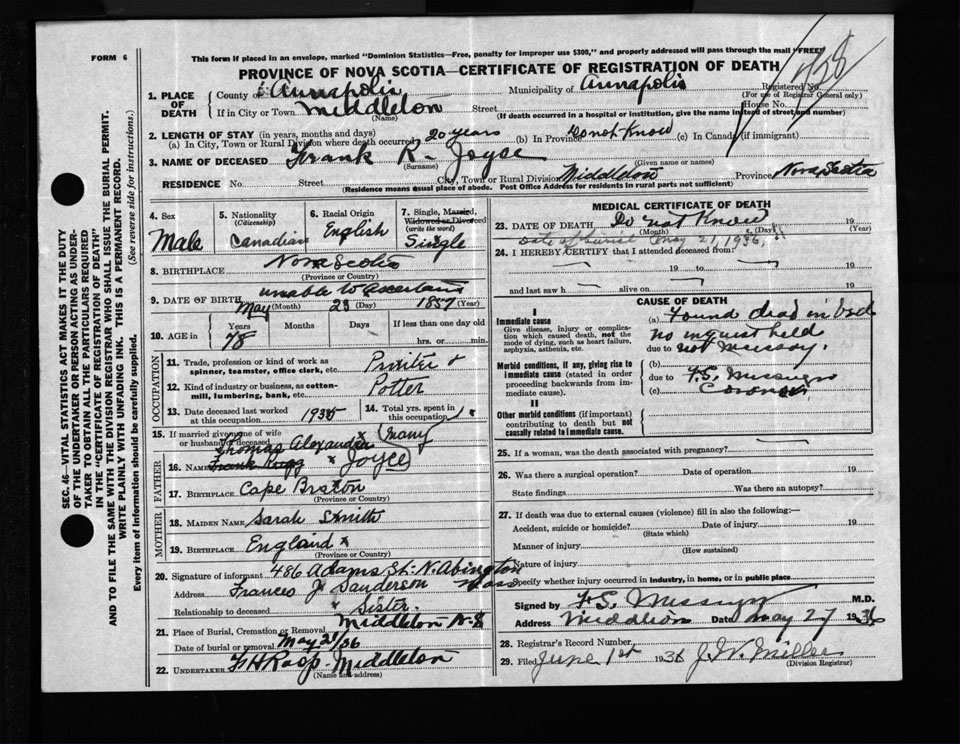 FORM 6
This form if placed in an envelope, marked "Dominion Statistics—Free, penalty for improper use $300," and properly addressed will pass through the mail "FREE"
458
PROVINCE OF NOVA SCOTIA—CERTIFICATE OF REGISTRATION OF DEATH
1. PLACE OF DEATH
County of Annapolis Municipality of Annapolis Registered No.
(For use of Registrar General only)
If in City or Town Middleton Street House No.
(Name) (If death occurred in a hospital or institution, give the name instead of street and number)
2. LENGTH OF STAY (in years, months and days)
(a) In City, Town or Rural Division where death occurred 20 years (b) In Province Do not Know (c) In Canada (if immigrant)
3. NAME OF DECEASED Frank R- Joyce
(Surname) (Given name or names)
RESIDENCE No. Street City, Town or Rural Division Middleton Province Nova Scotia
(Residence means usual place of abode. Post Office Address for residents in rural parts not sufficient)
4. Sex
Male
5. Nationality
(Citizenship)
Canadian
6. Racial Origin
English
7. Single, Married, Widowed or Divorced
(write the word)
Single
8. BIRTHPLACE Nova Scotia
(Province or Country)
unable to ascertain
9. DATE OF BIRTH May 23 1857
(Month) (Day) (Year)
10. AGE in Years Months Days If less than one day old
78 hrs. or min.
OCCUPATION
11. Trade, profession or kind of work as spinner, teamster, office clerk, etc.
12. Kind of industry or business, as cotton-mill, lumbering, bank, etc. Potter
13. Date deceased last worked at this occupation 1935
14. Total yrs. spent in this occupation
15. If married give name of wife or husband of deceased
Thomas Alexander (Mary
FATHER
16. Name Frank x Joyce)
17. Birthplace Cape Breton
(Province or Country)
MOTHER
18. Maiden Name Sarah Smith
19. Birthplace England x
(Province or Country)
20. Signature of informant 486 Adams St. N. Abington
Address Frances J Sanderson Mass
Relationship to deceased Sister
Middleton N-S
21. Place of Burial, Cremation or Removal
Date of burial or removal May 21/36
22. UNDERTAKER F H Roop- Middleton
(Name and address)
MEDICAL CERTIFICATE OF DEATH
23. DATE OF DEATH Do not Know 19
(Month) (Day) (Year)
Date of burial May 21, 1936
24. I HEREBY CERTIFY that I attended deceased from:
19 to 19
and last saw h alive on 19
CAUSE OF DEATH
I
Immediate cause
Give disease, injury or complication which caused death, not the mode of dying, such as heart failure, asphyxia, asthenia, etc.
(a) Found dead in bed
no inquest held
due to not necessary.
Morbid conditions, if any, giving rise to immediate cause (stated in order proceeding backwards from immediate cause).
(b)
due to
(c) Coroner
II
Other morbid conditions (if important) contributing to death but not causally related to immediate cause.
25. If a woman, was the death associated with pregnancy?
26. Was there a surgical operation? Date of operation 19
State findings Was there an autopsy?
27. If death was due to external causes (violence) fill in also the following:
Accident, suicide or homicide? Date of injury 19
(State which)
Manner of injury
(How sustained)
Nature of injury
Specify whether injury occurred in industry, in home, or in public place
Signed by M.D.
Address Middleton Date May 27 1936
28. Registrar's Record Number
29. Filed June 1st 1936 J. W. Miller
(Division Registrar)
SEC. 46—VITAL STATISTICS ACT MAKES IT THE DUTY
OF THE UNDERTAKER OR PERSON ACTING AS UNDERTAKER TO OBTAIN ALL THE PARTICULARS REQUIRED
IN THE "CERTIFICATE OF REGISTRATION OF DEATH"
AND TO FILE THE SAME WITH THE DIVISION REGISTRAR WHO SHALL ISSUE THE BURIAL PERMIT.
WRITE PLAINLY WITH UNFADING INK. THIS IS A PERMANENT RECORD.
Every item of information should be carefully supplied. (See reverse side for instructions.)